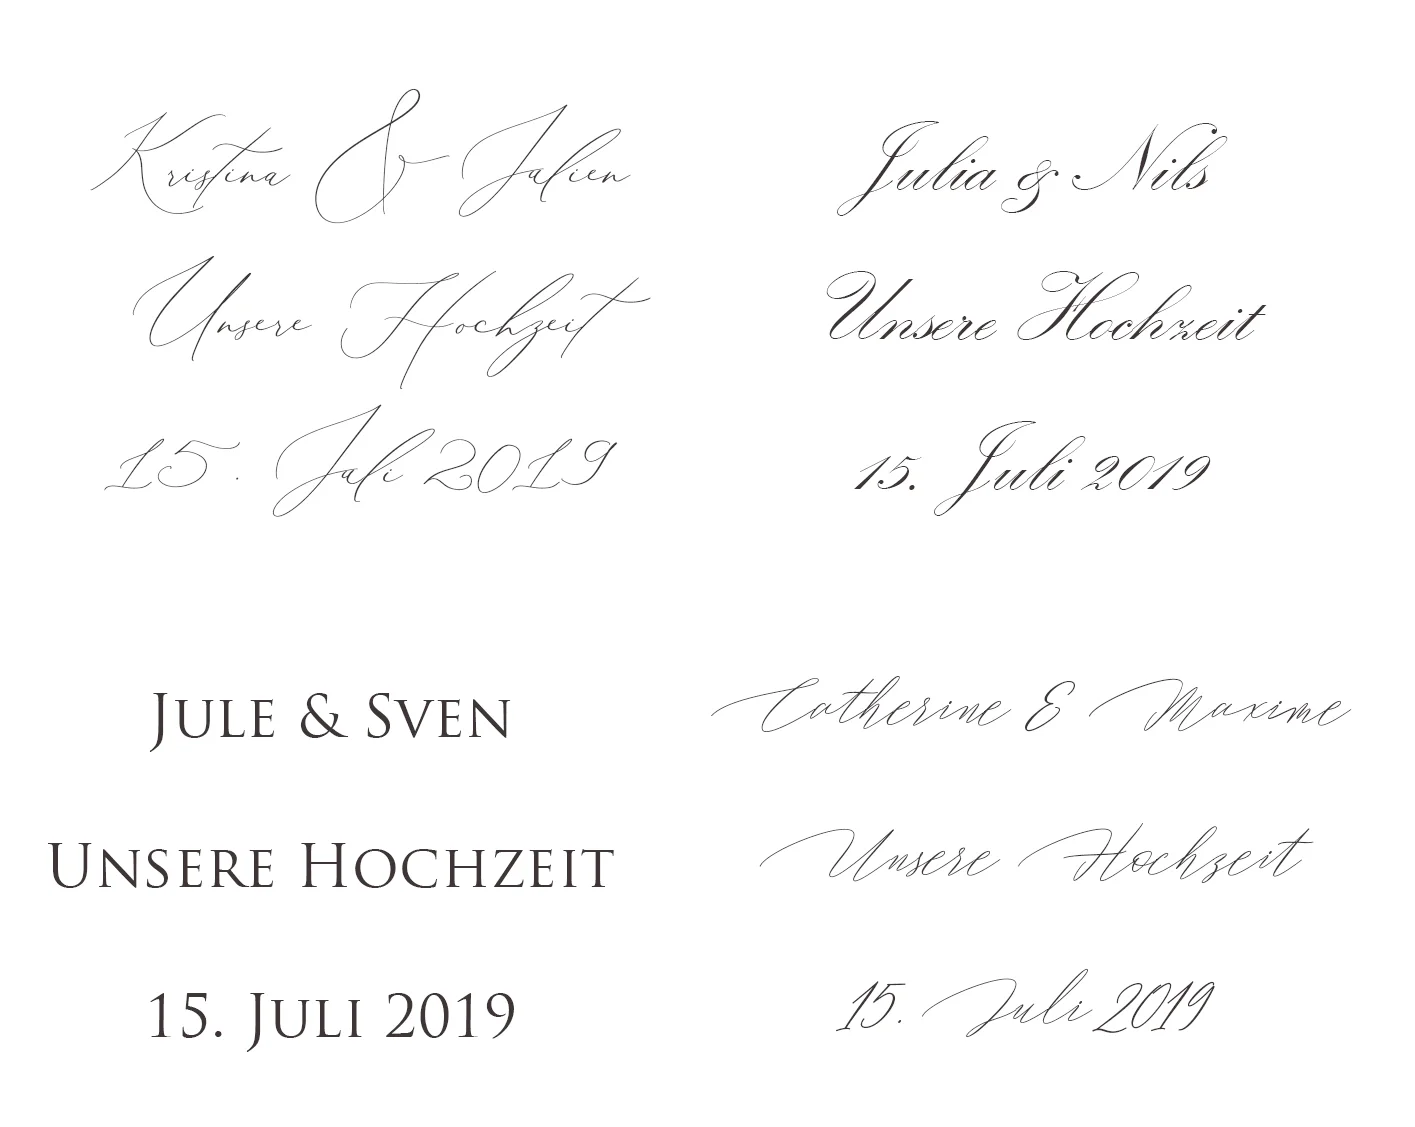 Kristina & Julien
Unsere Hochzeit
15. Juli 2019
Julia & Nils
Unsere Hochzeit
15. Juli 2019
Jule & Sven
Unsere Hochzeit
15. Juli 2019
Catherine & Maxime
Unsere Hochzeit
15. Juli 2019